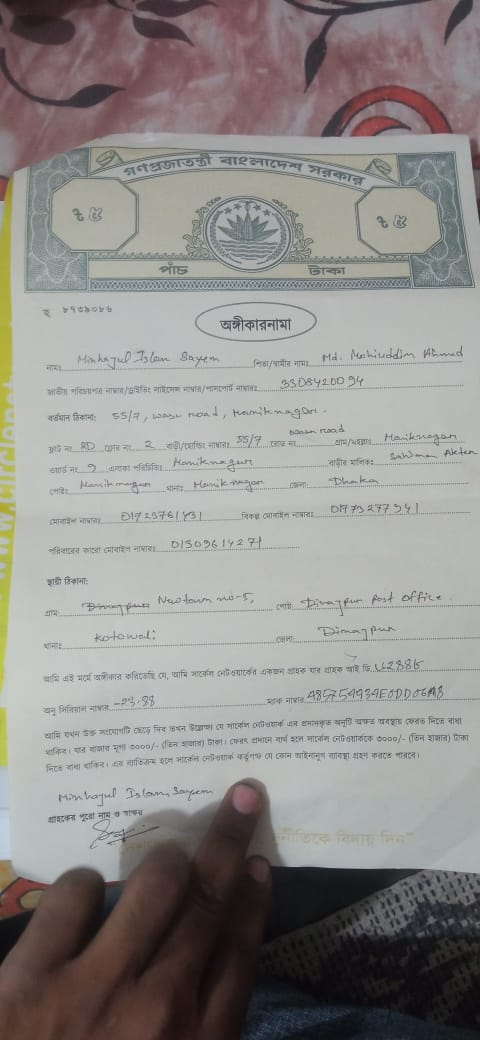 গণপ্রজাতন্ত্রী বাংলাদেশ সরকার
৳ ৫ ৳ ৫
পাঁচ টাকা
অঙ্গীকারনামা
নামঃ Minhazul Islam Sayem পিতা/স্বামীর নামঃ Md. Mohiuddin Ahmed
জাতীয় পরিচয়পত্র নাম্বার/ড্রাইভিং লাইসেন্স নাম্বার/পাসপোর্ট নাম্বারঃ 3308420094
বর্তমান ঠিকানা: 55/7, wasa road, Maniknagar.
ফ্লাট নং RD ফ্লোর নং 2 বাড়ী/হোল্ডিং নাম্বারঃ 55/7 রোড নং wasa road গ্রাম/মহল্লাঃ Maniknagar
ওয়ার্ড নং 9 এলাকা পরিচিতিঃ Maniknagar বাড়ীর মালিকঃ Salman Akter
পোষ্টঃ Maniknagar থানাঃ Maniknagar জেলাঃ Dhaka
মোবাইল নাম্বারঃ 01723761431 বিকল্প মোবাইল নাম্বারঃ 01773277341
পরিবারের কারো মোবাইল নাম্বারঃ 01309614271
স্থায়ী ঠিকানা:
গ্রাম: Newtown no-5, পোষ্ট: Dinajpur Post Office.
থানাঃ Kotowali জেলাঃ Dinajpur
আমি এই মর্মে অঙ্গীকার করিতেছি যে, আমি সার্কেল নেটওয়ার্কের একজন গ্রাহক যার গ্রাহক আই ডি
অনু সিরিয়াল নাম্বার -23-88 ম্যাক নাম্বার 485754434E0DD06A8
আমি যখন উক্ত সংযোগটি ছেড়ে দিব তখন উল্লেখ্য যে সার্কেল নেটওয়ার্ক এর প্রদানকৃত অনুটি অক্ষত অবস্থায় ফেরত দিতে বাধ্য
থাকিব। যার বাজার মূল্য ৩০০০/- (তিন হাজার) টাকা। ফেরৎ প্রদানে ব্যর্থ হলে সার্কেল নেটওয়ার্ককে ৩০০০/- (তিন হাজার) টাকা
দিতে বাধ্য থাকিব। এর ব্যতিক্রম হলে সার্কেল নেটওয়ার্ক কর্তৃপক্ষ যে কোন আইনানুগ ব্যবস্থা গ্রহণ করতে পারবে।
Minhazul Islam Sayem
গ্রাহকের পুরো নাম ও স্বাক্ষর
বিদায় দিন"